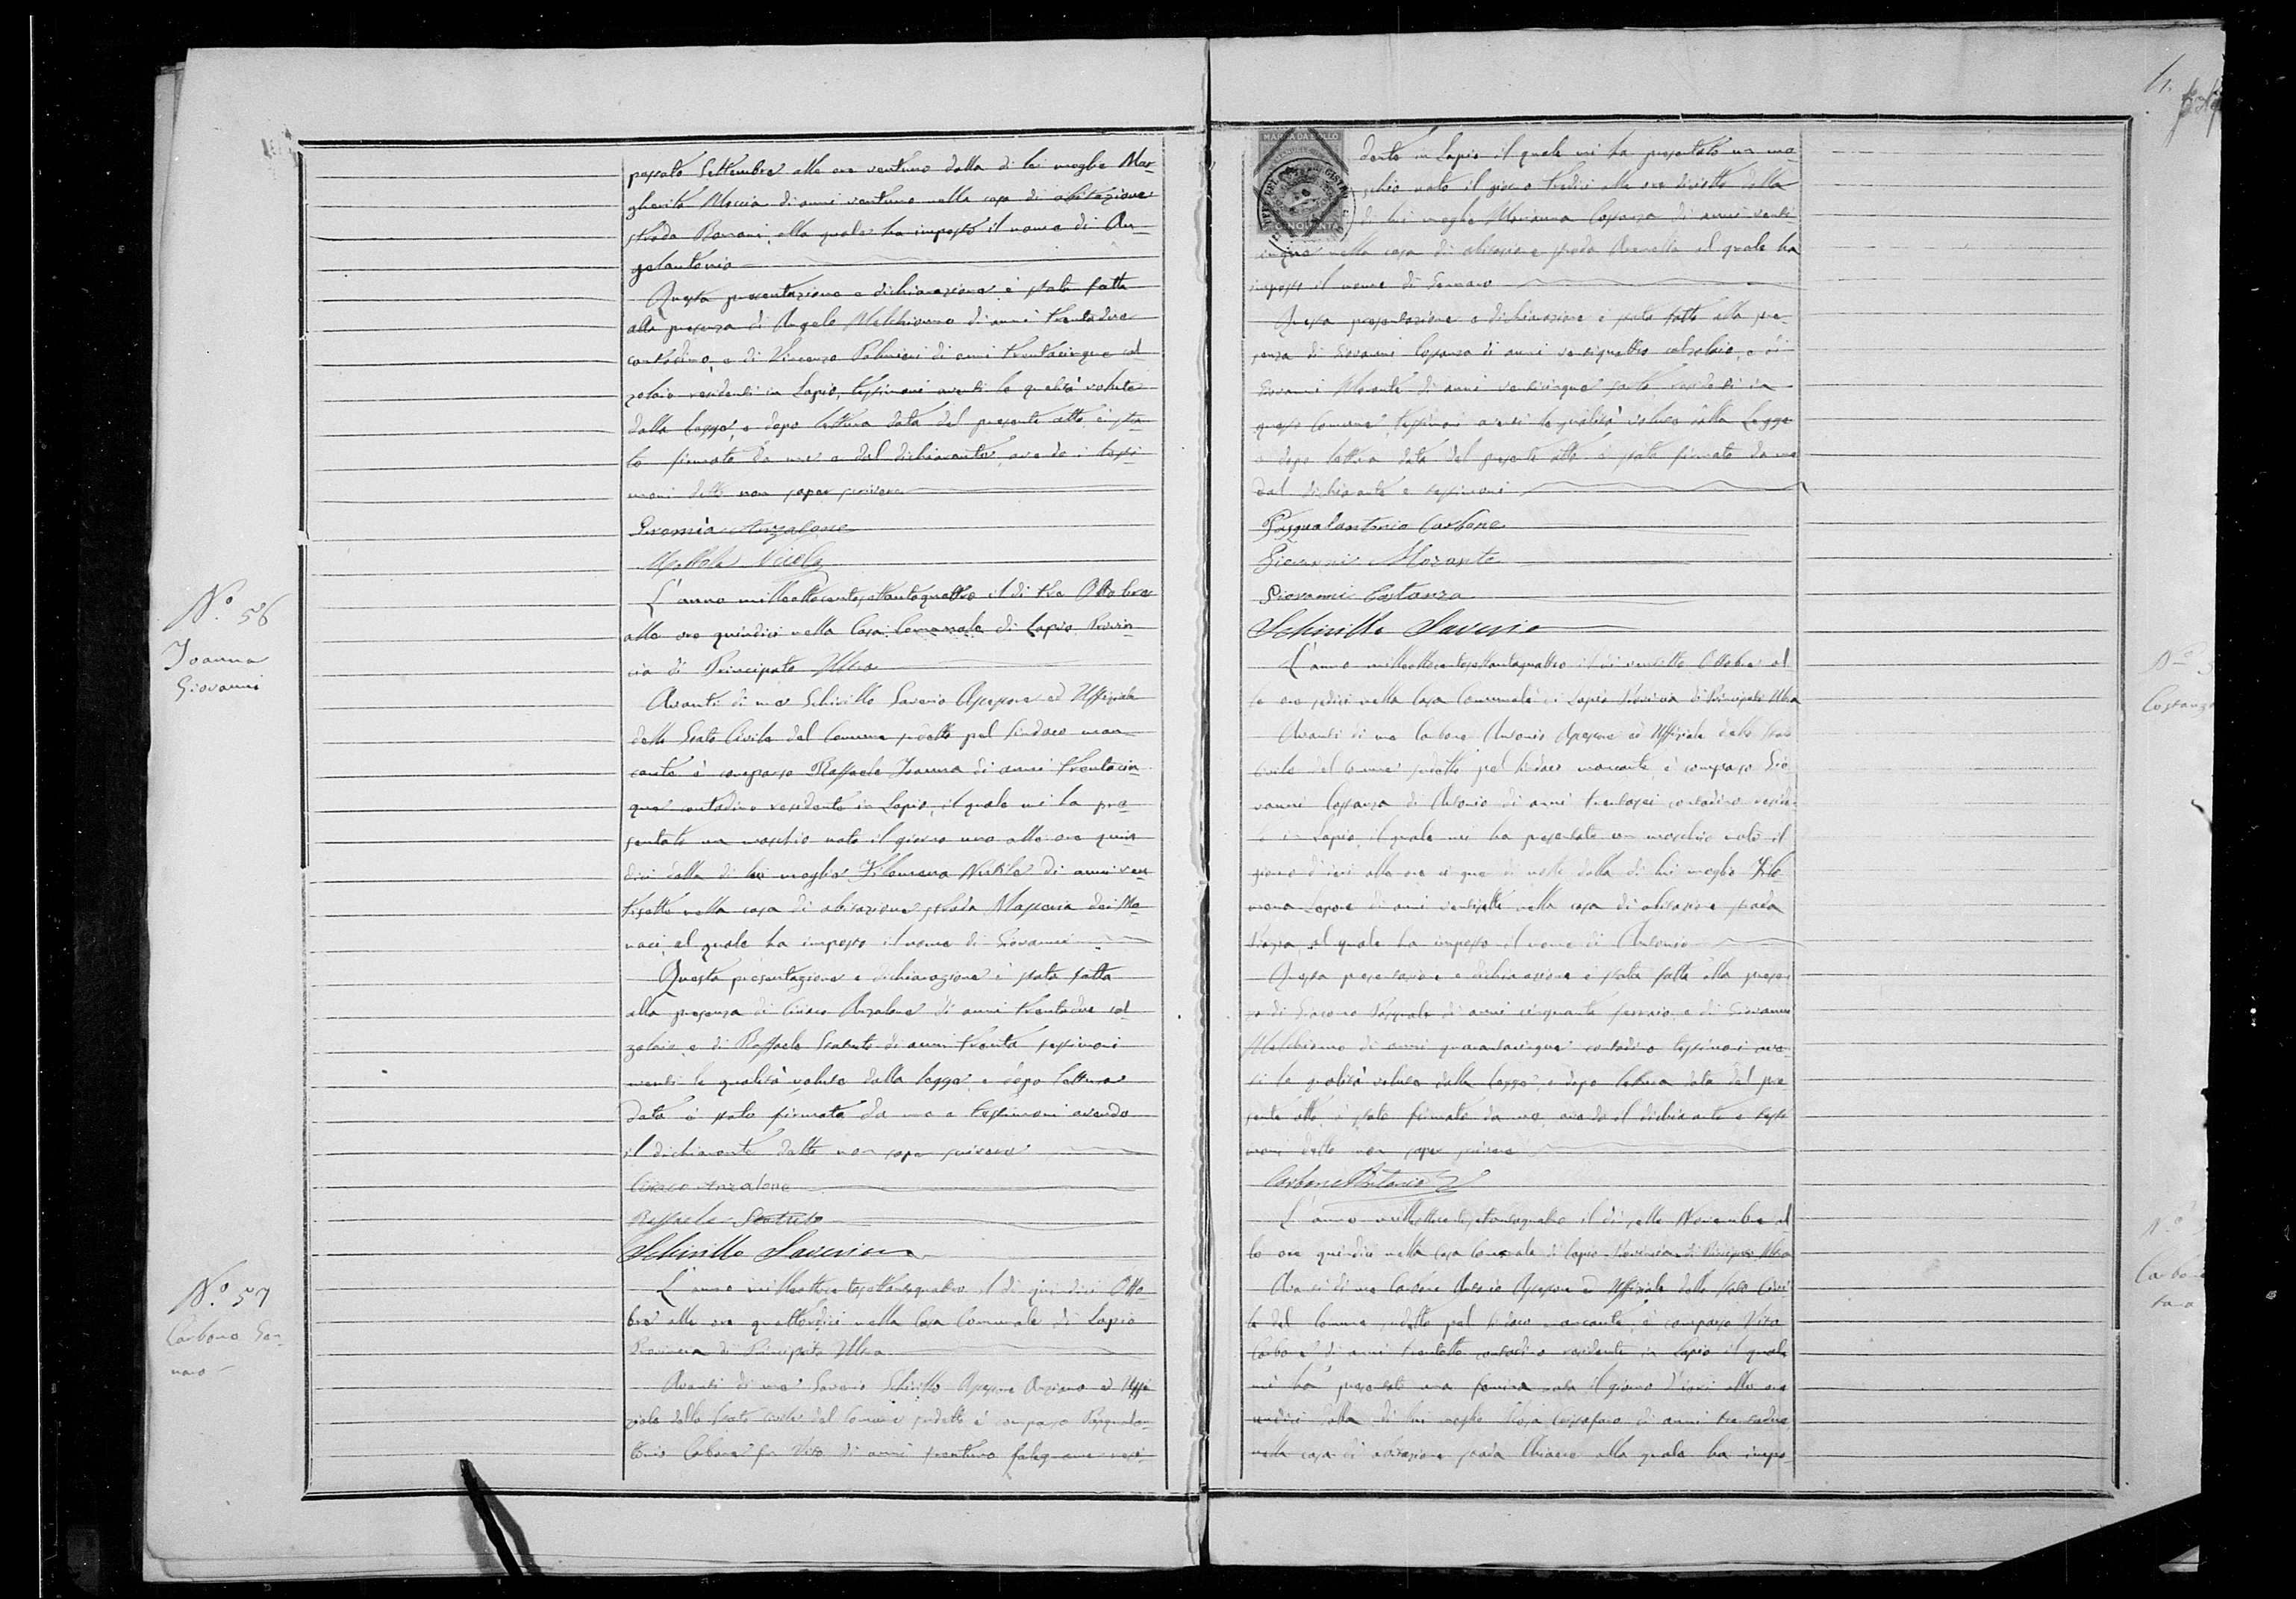 passato Settembre alle ore ventuno dalla di lui moglie Mar-
gherita Moccia di anni ventuno nella casa di abitazione
strada Barrani, alla quale ha imposto il nome di An-
gelantonia
Questa presentazione e dichiarazione è stata fatta
alla presenza di Angelo Melchionno di anni trentadue
contadino, e di Vincenzo Palmieri di anni trentacinque cal-
zolaio residenti in Lapio, testimoni aventi le qualità volute
dalla Legge, e dopo lettura data del presente atto è sta-
to firmato da me e dal dichiarante, avendo i testi-
moni detto non saper scrivere
Geremia Anzalone
Nicola
N.o 56
Joanna
Giovanni
L'anno milleottocentottantaquattro il dì tre Ottobre
alle ore quindici nella Casa Comunale di Lapio Provin-
cia di Principato Ultra
Avanti di me Schirillo Saverio Assessore ed Uffiziale
dello Stato Civile del Comune sudetto pel Sindaco man-
cante è comparso Raffaele Joanna di anni trentacin-
que contadino residente in Lapio, il quale mi ha pre-
sentato un maschio nato il giorno uno alle ore quin-
dici dalla di lui moglie Filomena di anni ven-
tisette nella casa di abitazione strada Masseria dei Mo-
naci, al quale ha imposto il nome di Giovanni
Questa presentazione e dichiarazione è stata fatta
alla presenza di Ciriaco Anzalone di anni trentadue cal-
zolaio, e di Raffaele di anni trenta testimoni
aventi le qualità volute dalla legge, e dopo lettura
data è stato firmato da me e testimoni avendo
il dichiarante detto non saper scrivere
Ciriaco Anzalone
Raffaele
Schirillo Saverio
N.o 57
Carbone Gen-
naro
L'anno milleottocentottantaquattro il dì quindici Otto-
bre alle ore quattordici nella Casa Comunale di Lapio
Provincia di Principato Ultra
Avanti di me Saverio Schirillo Assessore Anziano ed Uffi-
ziale dello Stato Civile del Comune sudetto è comparso Pasqualan-
tonio Carbone fu Vito di anni trentuno falegname resi-
dente in Lapio il quale mi ha presentato un ma-
schio nato il giorno tredici alle ore diciotto dalla
di lui moglie Marianna Costanza di anni venti
cinque nella casa di abitazione strada al quale ha
imposto il nome di Gennaro
Questa presentazione e dichiarazione è stata fatta alla pre-
senza di Giovanni Costanza di anni ventiquattro calzolaio, e di
Giovanni Morante di anni venticinque sarto, residenti in
questo Comune, testimoni aventi le qualità volute dalla Legge
e dopo lettura data del presente atto è stato firmato da me
dal dichiarante e testimoni
Pasqualantonio Carbone
Giovanni Morante
Giovanni Costanza
Schirillo Saverio
N.o
Costanza
L'anno milleottocentottantaquattro il dì ventotto Ottobre al-
le ore sedici nella Casa Comunale di Lapio Provincia di Principato Ultra
Avanti di me Carbone Antonio Assessore ed Uffiziale dello Stato
Civile del Comune sudetto pel Sindaco mancante, è comparso Gio-
vanni Costanza di Antonio di anni trentasei contadino residen-
te in Lapio, il quale mi ha presentato un maschio nato il
giorno d'ieri alle ore cinque di notte dalla di lui moglie Filo-
mena Lepore di anni ventisette nella casa di abitazione strada
Piazza al quale ha imposto il nome di Antonio
Questa presentazione e dichiarazione è stata fatta alla presen-
za di Giacomo Pasquale di anni cinquanta ferraio, e di Giovanni
Melchionno di anni quarantacinque contadino testimoni aven-
ti le qualità volute dalla Legge, e dopo lettura data del pre-
sente atto è stato firmato da me, avendo il dichiarante e testi-
moni detto non saper scrivere
Carbone Antonio
N.o
Carbone
L'anno milleottocentottantaquattro il dì sette Novembre al-
le ore quindici nella Casa Comunale di Lapio Provincia di Principato Ultra
Avanti di me Carbone Antonio Assessore ed Uffiziale dello Stato Civi-
le del Comune sudetto pel Sindaco mancante, è comparso Vito
Carbone di anni trentotto contadino residente in Lapio il quale
mi ha presentato una femina nata il giorno d'ieri alle ore
undici dalla di lui moglie Rosa di anni trentadue
nella casa di abitazione strada Chiaio alla quale ha impo-
MARCA DA BOLLO